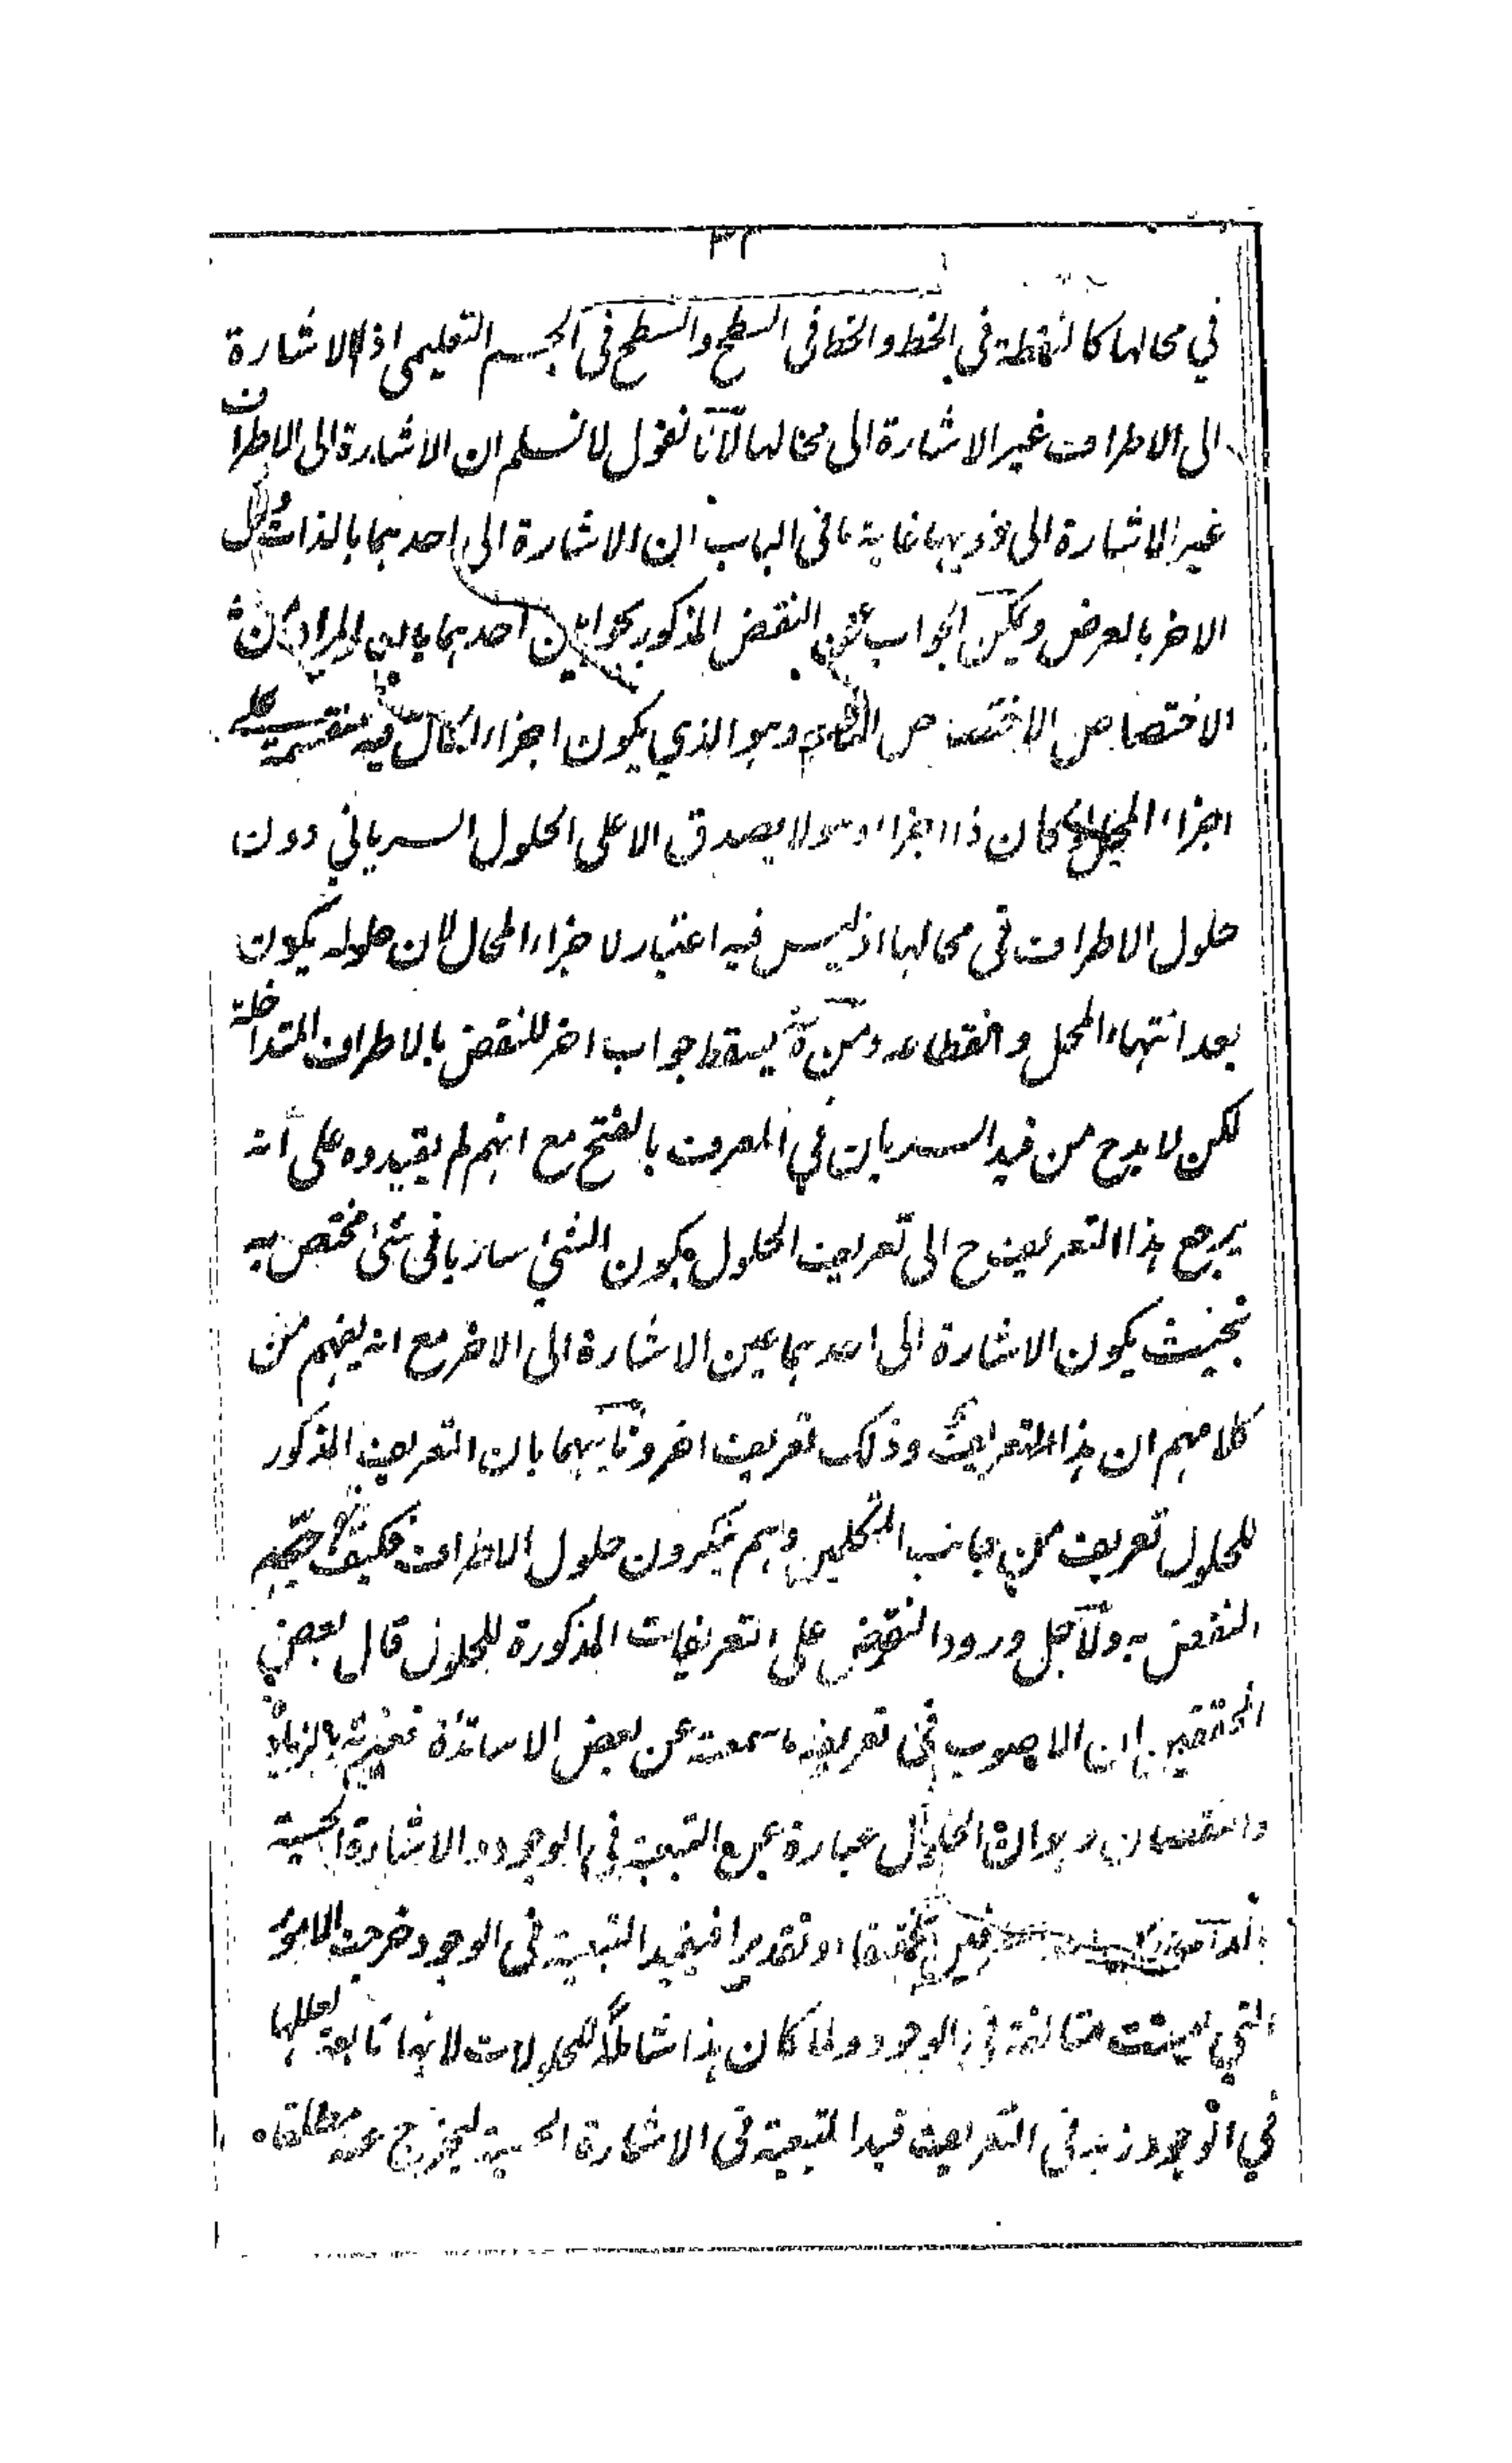 ٣٢
في محالها كالنقطة في الخط والخط في السطح والسطح في الجسم التعليمي اذ الاشارة
الى الاطراف غير الاشارة الى محالها لانا نقول لا نسلم ان الاشارة الى الاطراف
غير الاشارة الى ذويها غاية ما في الباب ان الاشارة الى احدهما بالذات و الى
الاخر بالعرض ويمكن الجواب عن النقض المذكور بجوابين احدهما بان المراد من
الاختصاص الاختصاص وهو الذي يكون اجزاء الحال فيه منقسمة على
اجزاء المحل كان ذا اجزاء وهو لا يصدق الا على الحلول السرياني دون
حلول الاطراف في محالها اذ ليس فيه اعتبار لاجزاء المحال لان حلوله يكون
بعد انتهاء المحل وانقطاعه ومن ثمة يسقط جواب اخر للنقض بالاطراف المتداخلة
لكن لا بد ح من قيد السريان في المعرف بالفتح مع انهم لم يقيدوه على انه
يرجع هذا التعريف ح الى تعريف الحلول بكون الشئ ساريا في شئ مختص به
بحيث يكون الاشارة الى احدهما عين الاشارة الى الاخر مع انه يفهم من
كلامهم ان هذا التعريف وذلك تعريف اخر وثانيهما بان التعريف المذكور
للحلول تعريف من جانب المتكلمين وهم ينكرون حلول الاطراف فكيف يتجه
النقض به ولاجل ورود النقوض على التعريفات المذكورة للحلول قال بعض
المحققين ان الاصوب في تعريفه ما سمعته عن بعض الاساتذة بالزيادة
والنقصان وهو ان الحلول عبارة عن التبعية في الوجود والاشارة الحسية
تحقيقا او تقديرا فبقيد التبعية في الوجود خرجت الامور
التي ليست في الوجود ولما كان هذا شاملا للمعلولات لانها تابعة لعللها
في الوجود زيد في التعريف قيد التبعية في الاشارة الحسية ليخرج عنه مطلقا